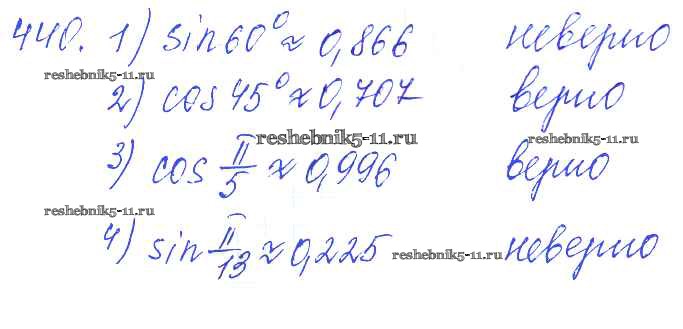 440. 1) sin60° ≈ 0,866 неверно
reshebnik5-11.ru
2) cos45° ≈ 0,707 верно
reshebnik5-11.ru reshebnik5-11.ru
3) cos π/5 ≈ 0,996 верно
reshebnik5-11.ru
4) sin π/13 ≈ 0,225 неверно
reshebnik5-11.ru